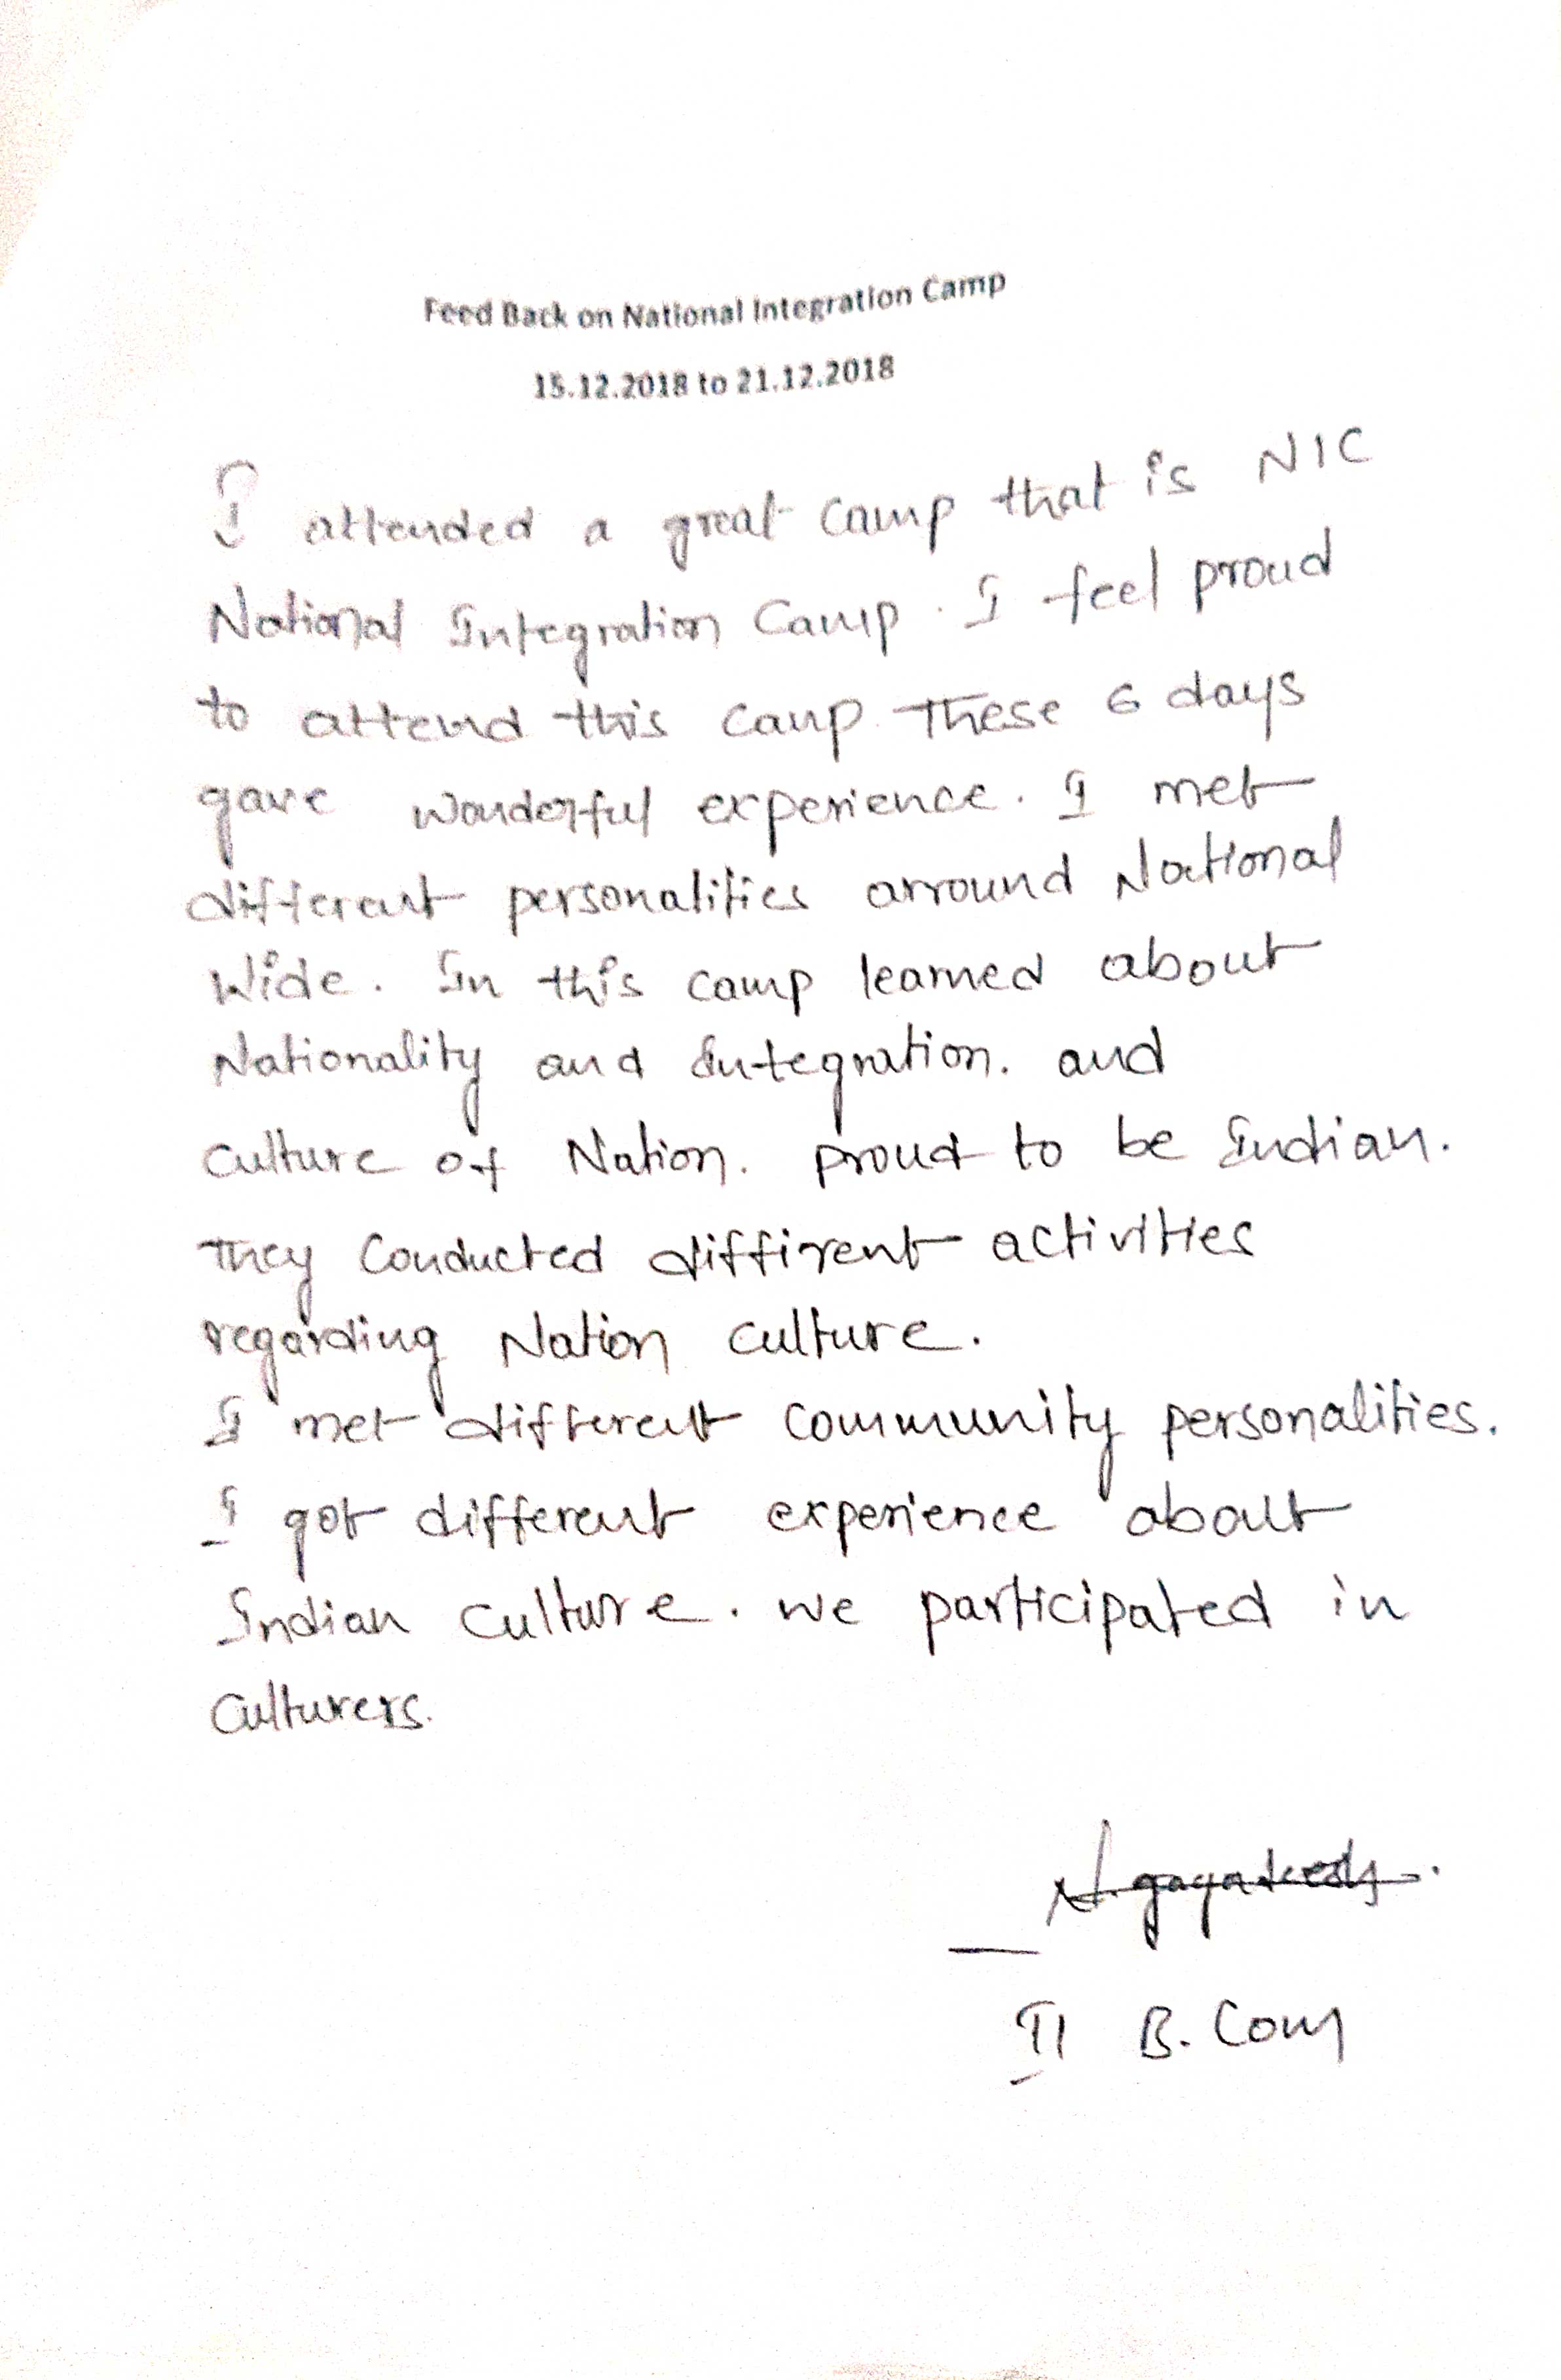 Feed Back on National Integration Camp
15.12.2018 to 21.12.2018
I attended a great camp that is NIC
National Integration Camp. I feel proud
to attend this camp. These 6 days
gave wonderful experience. I met
different personalities arround National
Wide. In this camp learned about
Nationality and Integration. and
culture of Nation. proud to be Indian.
They conducted diffirent activities
regarding Nation culture.
I met different community personalities.
I got different experience about
Indian culture. we participated in
Culturers.
II B.Com